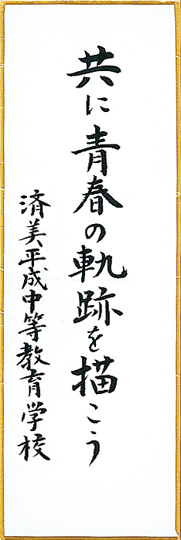 共に青春の軌跡を描こう
済美平成中等教育学校